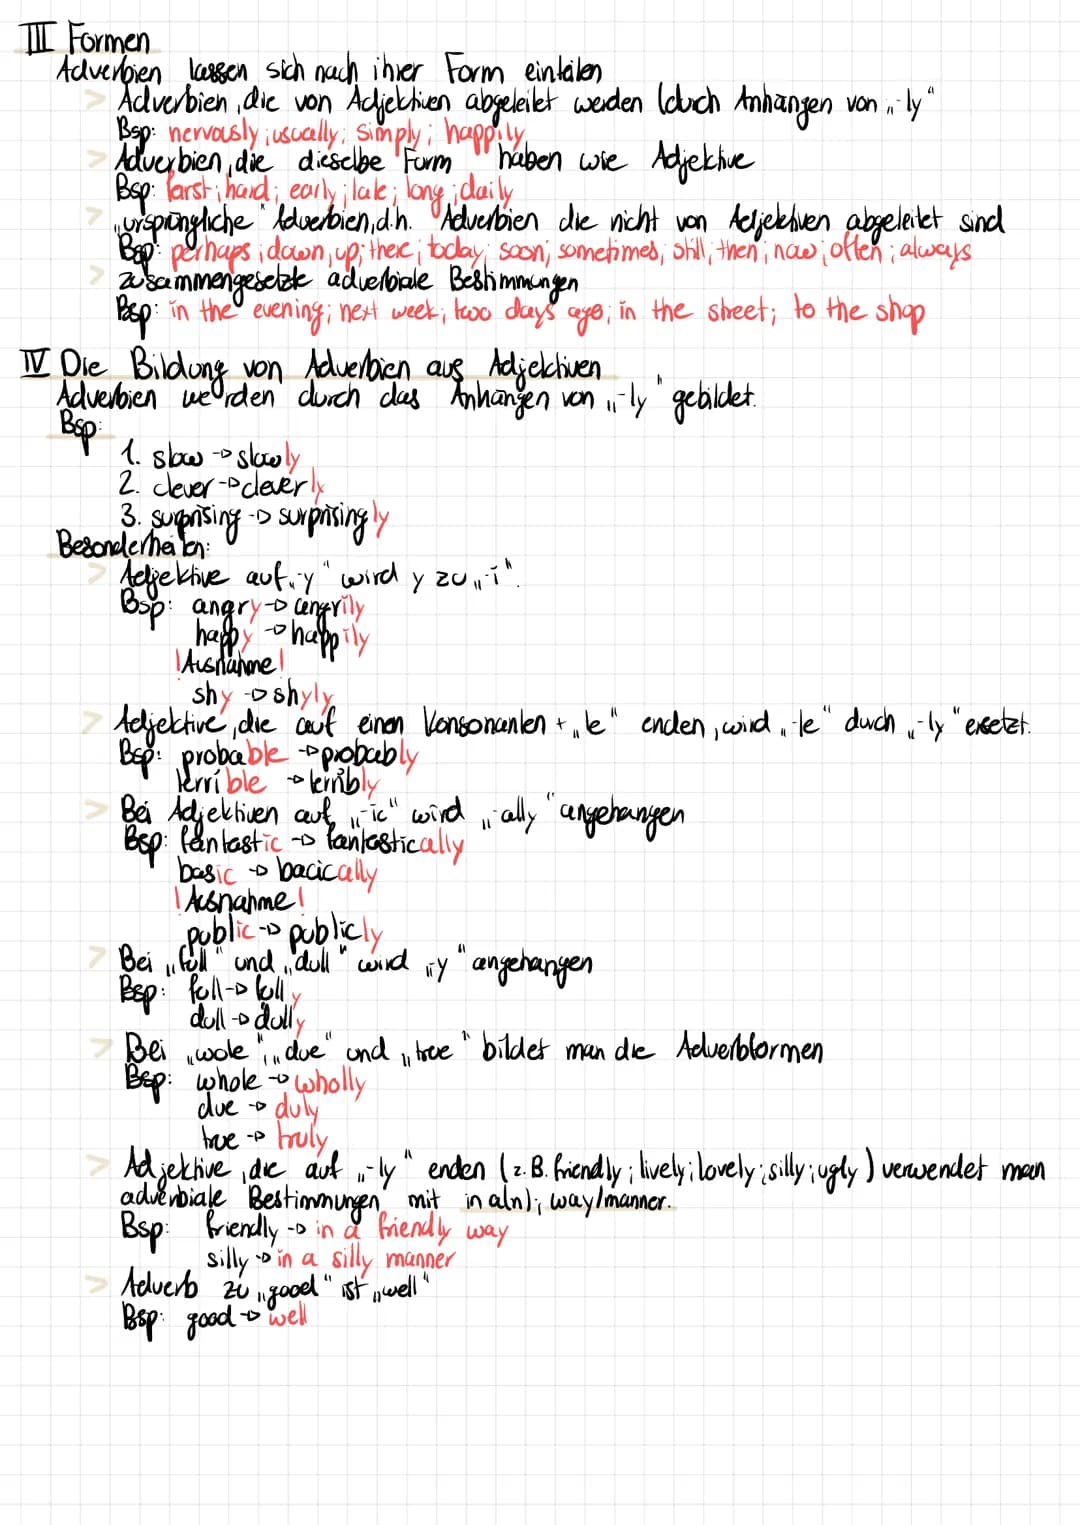 III Formen
Adverbien lassen sich nach ihrer Form einteilen
> Adverbien, die von Adjektiven abgeleitet werden (duch Anhängen von „-ly“
Bsp: nervously; usually; simply; happily
> Adverbien, die dieselbe Form haben wie Adjektive
Bsp: farst; hard; early; late; long; daily
> „ursprüngliche“ Adverbien, d.h. Adverbien die nicht von Adjektiven abgeleitet sind
Bsp: perhaps; down, up; there; today; soon; sometimes, still, then; now; often; always
> zusammengesetzte adverbiale Bestimmungen
Bsp: in the evening; next week; two days ago; in the street; to the shop
IV Die Bildung von Adverbien aus Adjektiven
Adverbien werden durch das Anhängen von „-ly“ gebildet.
Bsp:
1. slow → slowly
2. clever → cleverly
3. surprising → surprisingly
Besonderheiten:
> Adjektive auf „-y“ wird y zu „-i“.
Bsp: angry → angrily
happy → happily
! Ausnahme !
shy → shyly
> Adjektive, die auf einen Konsonanten + „le“ enden, wird „-le“ durch „-ly“ ersetzt.
Bsp: probable → probably
terrible → terribly
> Bei Adjektiven auf „-ic“ wird „-ally“ angehangen
Bsp: fantastic → fantastically
basic → bacically
! Ausnahme !
public → publicly
> Bei „full“ und „dull“ wird „-y“ angehangen
Bsp: full → fully
dull → dully
> Bei „wole“, „due“ und „true“ bildet man die Adverbformen
Bsp: whole → wholly
due → duly
true → truly
> Adjektive, die auf „-ly“ enden (z.B. friendly; lively; lovely; silly; ugly) verwendet man
adverbiale Bestimmungen mit in a(n); way/manner.
Bsp: friendly → in a friendly way
silly → in a silly manner
> Adverb zu „good“ ist „well“
Bsp: good → well